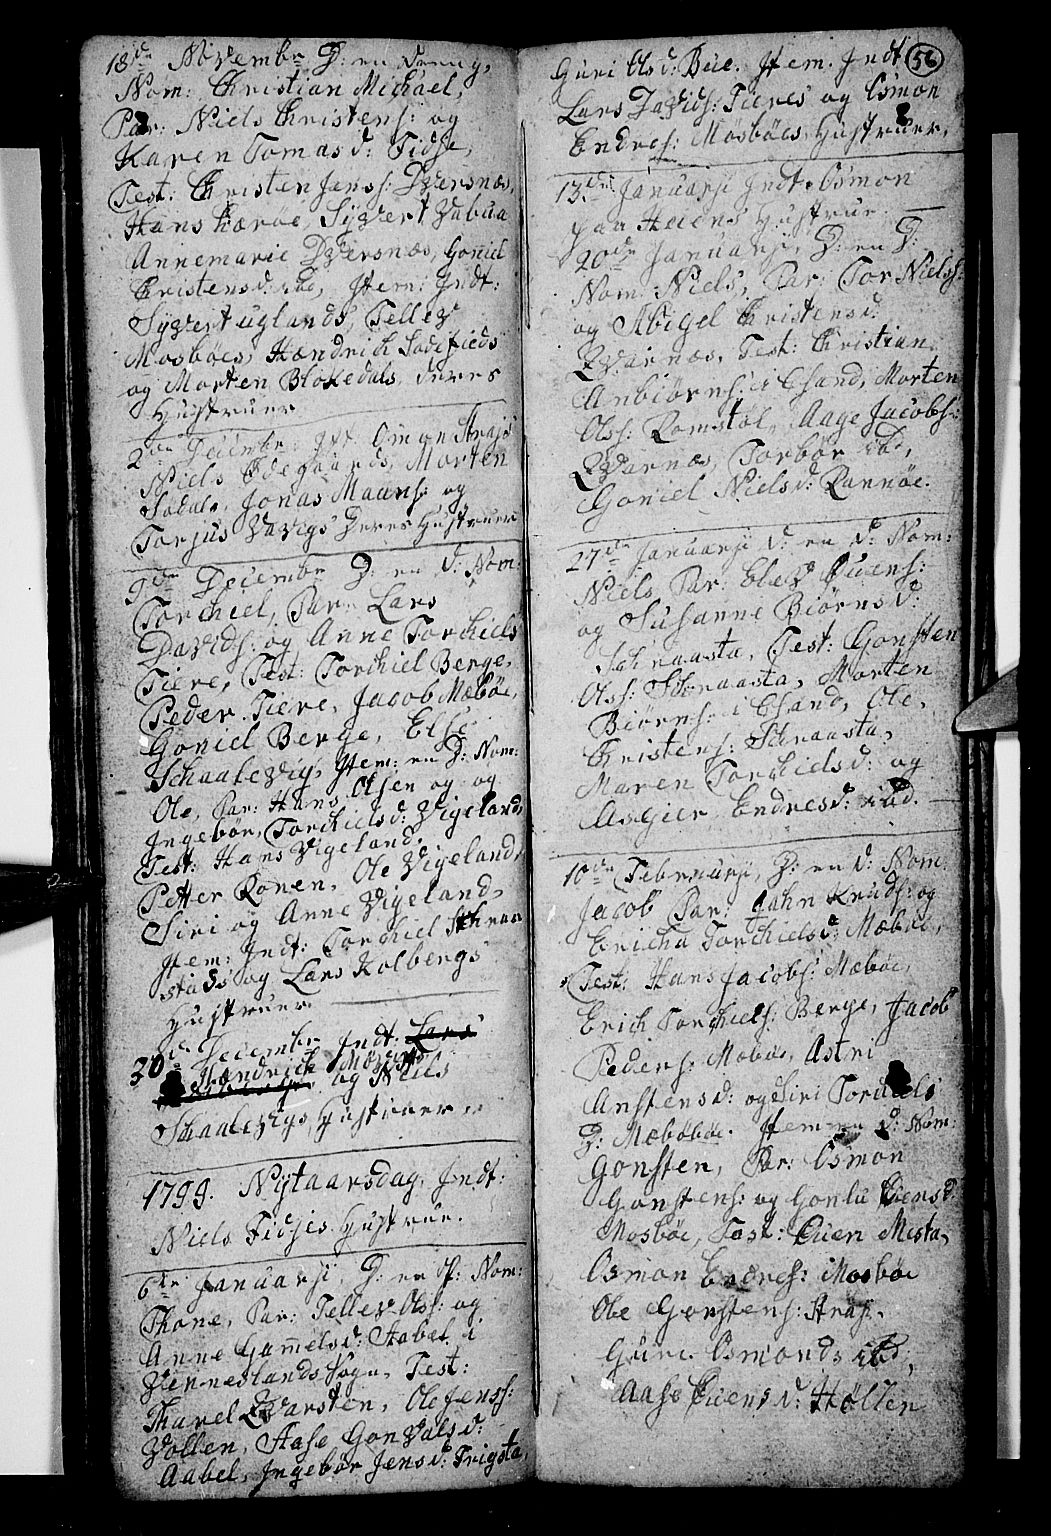 18de Novembr D: en dreng,
Nom: Christian Michael,
Par: Niels Christens: og
Karen Tomasd: Fidje,
Test: Christen Jenss: Dversnæs,
Hans Kærøe, Syvert
Annemarie Dversnæs, Goniel
Christensd: ibd, Item: Indt:
Syvert uglands, Tellev
Mosbøes, Hændrich
og Morten Blokedals, deres
Hustruer
2den Decembr:
Niels Ødegaards, Morten
Sødals, Jonas Maans: og
Torjus Vavigs Deres Hustruer
9de Decembr D: en d: Nom:
Torchiel, Par: Lars
Davids: og Anne Torchiels
Tiere, Test: Torchiel Berge,
Peder Tiere, Jacob Mæbøe,
Goniel Berge, Else
Schaalevig, Item: en D: Nom:
Ole, Par: Hans Olsen og og
Ingebør Torchielsd: Vigeland,
Test: Hans Vigeland,
Petter Ronen, Ole Vigeland,
Siri og Anne Vigeland,
Item: Indt: Torchiel Schraa
stads og Lars Kolbergs
Hustruer
30de Decembr Indt: Lars
Hændrich
og Niels
Skaalevigs, Hustruer
1799. Nytaarsdag, Indt:
Niels Fidjes Hustrue.
6te Januarji, D: en p: Nom:
Thone, Par: Tellev Olss: og
Anne Gammelsd: Aabel i
Venneslands Sogn, Test:
Tharel Qvarsten, Ole Jenss:
Vollen, Aase Gonvalsd:
Aabel, Ingebør Jensd: Trigsta,
56
Guri Olsd: Bue. Item. Indt
Lars Davids: Tieres og Osmon
Endres: Mosbøes, Hustruer,
13de Januarji Indt: Osmon
paa Heiens Hustrue
20de Januarji, D: en D:
Nom: Niels, Par: Tor Nielss:
og Abigel Christensd:
Qvarnæs, Test: Christian
Anbiørns: i Øsand, Morten
Olss: Romstøl, Aage Jacobs:
Qvarnæs, Torbør ibd,
Goniel Nielsd: Rannøe.
27de Januarji d: en d: Nom:
Niels Par: Elev Evens:
og Susanne Biørnsd:
Schraasta, Test: Gonsten
Olss: Schraasta, Morten
Biørns: i Øsand, Ole
Christens: Schraasta,
Maren Torchielsd: og
Asgier Endresd: ibd.
10de Februarji, D: en d: Nom:
Jacob Par: Jahn Knuds: og
Ericha Torchielsd: Mæbøe,
Test: Hans Jacobs: Mæbøe,
Erich Torchiels: Berge, Jacob
Peders: Mæbøe, Astri
Anstensd: og Siri Torchiels
D: Mæbøbøe. Item en d: Nom:
Gonsten, Par: Osmon
Gonstens: og Gonlu Eiensd:
Mosbøe, Test: Even Mesta,
Osmon Endres: Mosbøe
Ole Gonstens: Straj,
Guri Osmonds ibd,
Aase Eiensd: Høllen